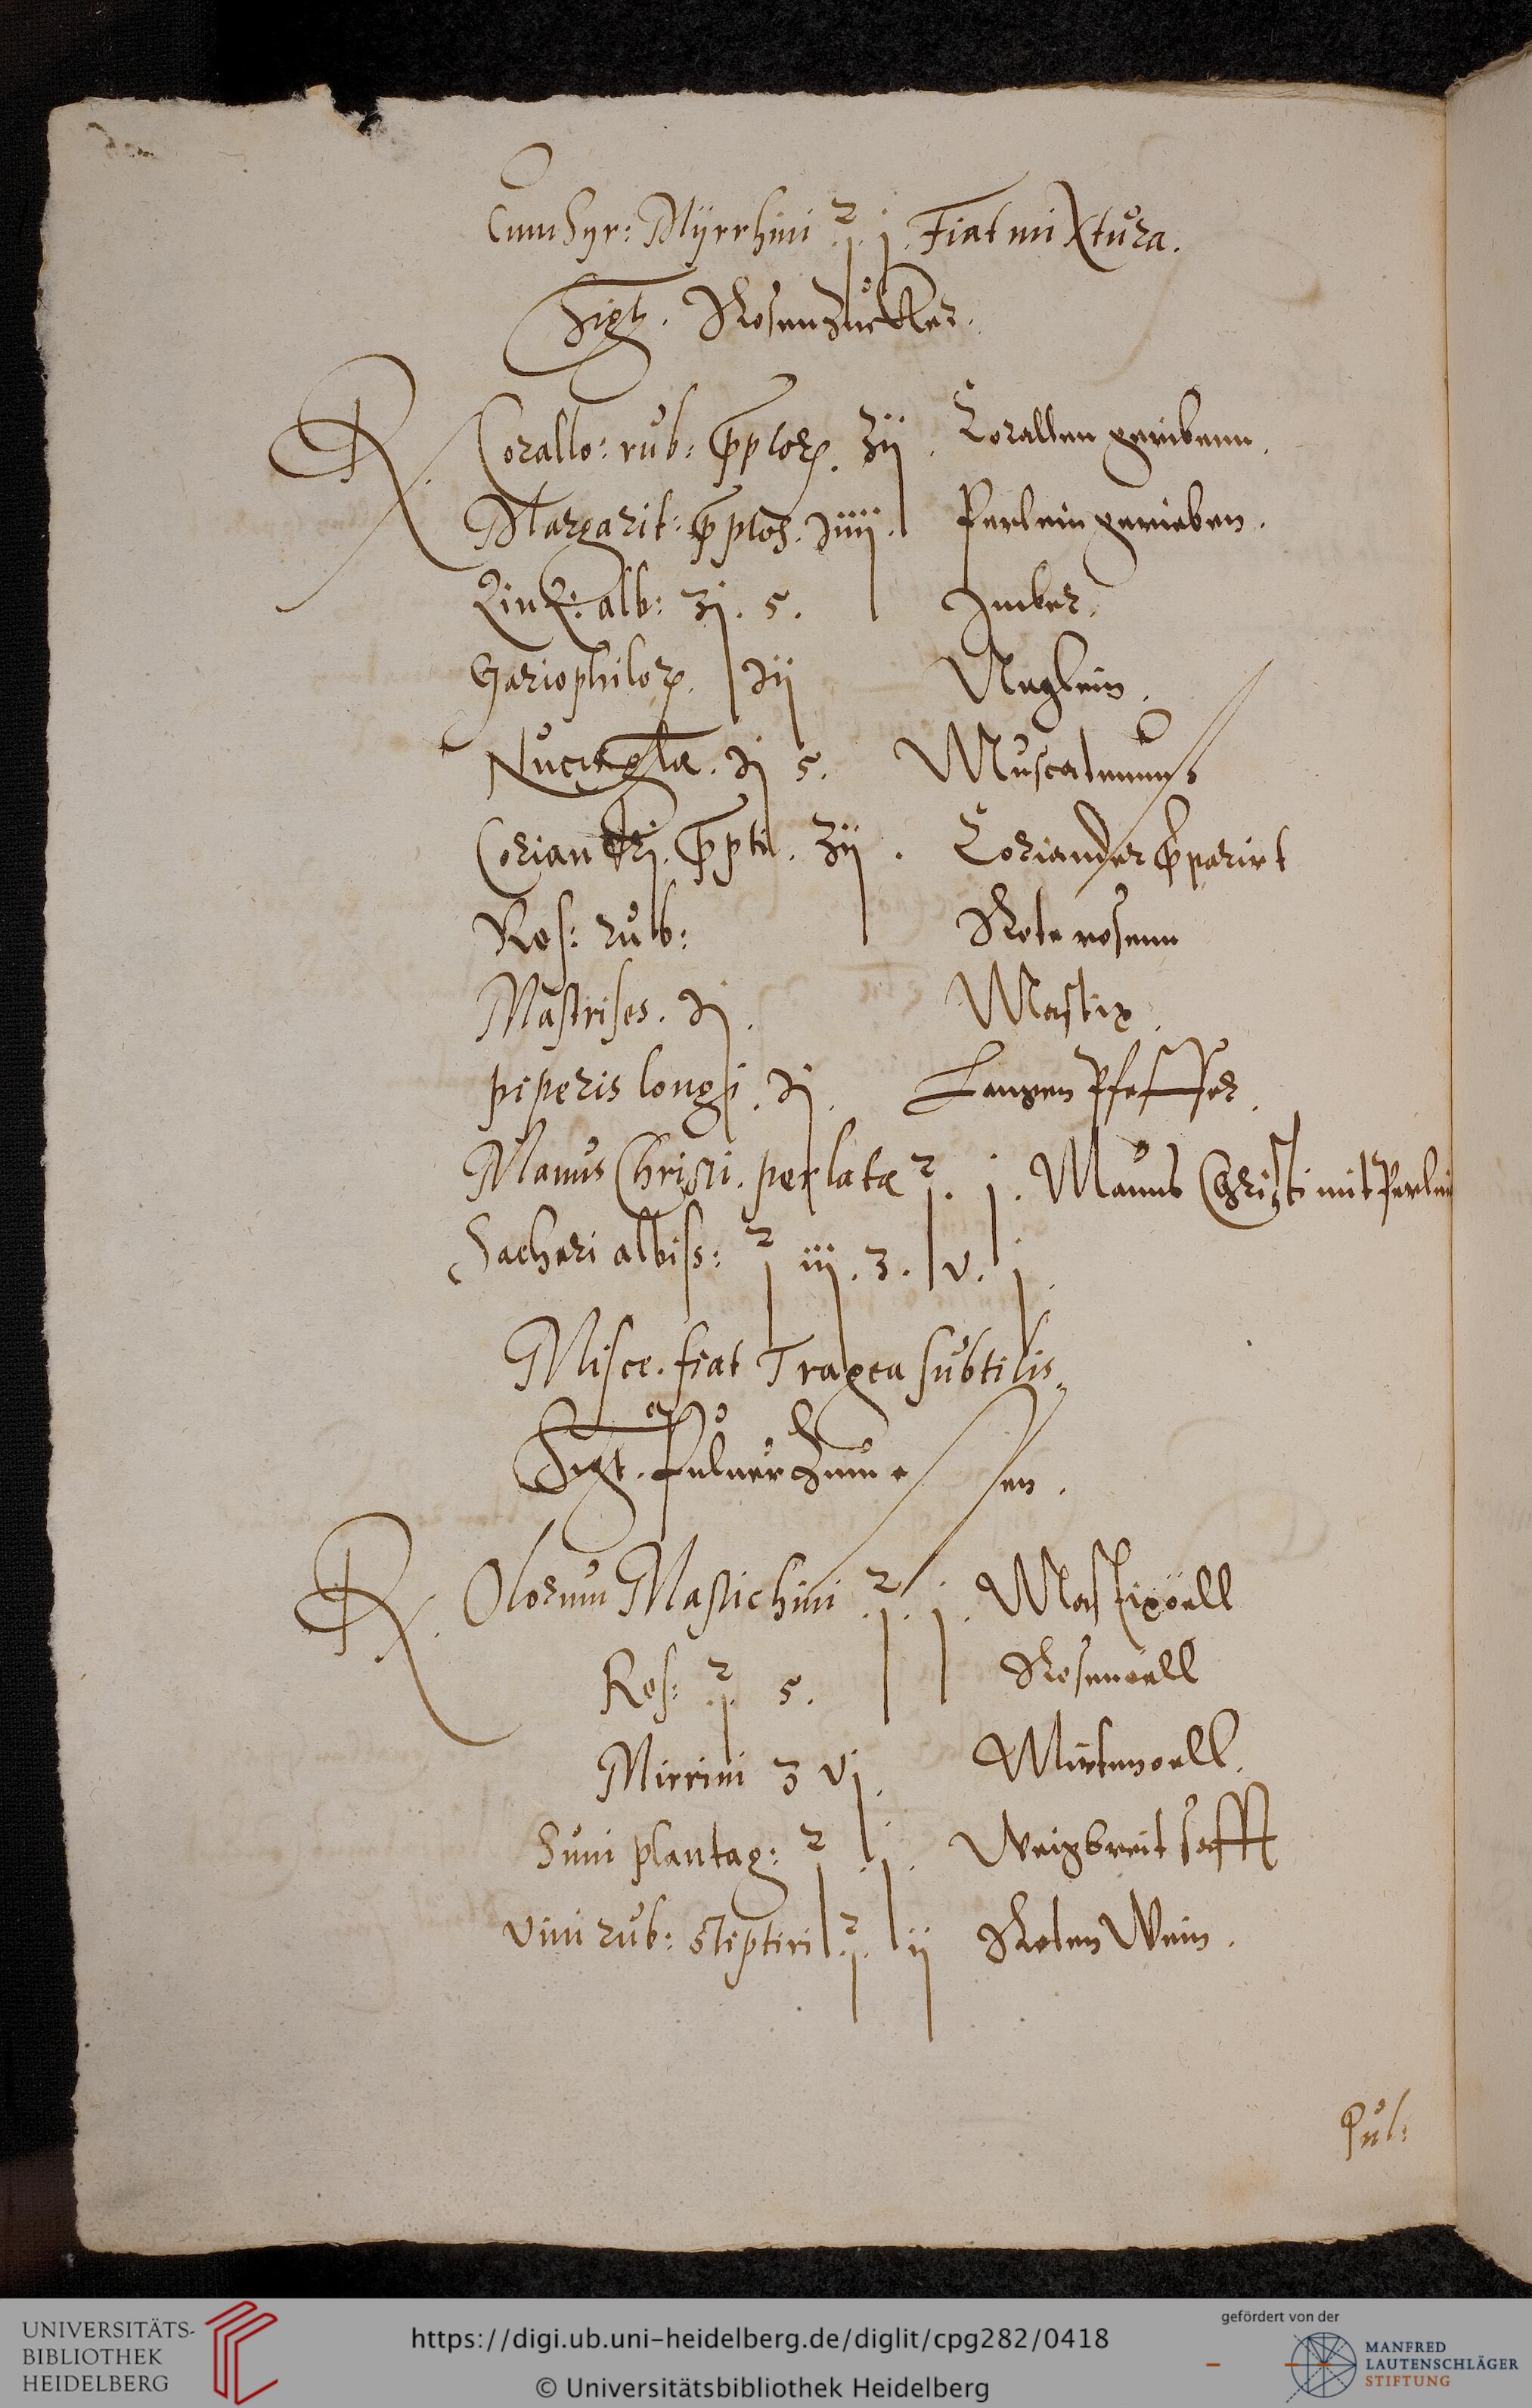 Cum Syr: Myrrhini ℥. j. Fiat mixtura.
Sigt. Rosenzuckker.
℞. Corallo: rub: pptorꝫ. ʒij. Corallen geribenn.
Margarit: pptos. ℈iiij. Perlein gerieben.
Zinz: alb: ʒj. s. Imber.
Gariophilorꝫ. ℈ij Neglein.
Nucis ℈j s. Muscatnnus
Coriandrj. ppti. ʒij. Coriander pparirt
Ros: rub: Rote rosenn
Mastrises. ℈j. Mastix.
piperis longi. ℈j. Langen Pfeffer.
Manus Christi. perlatæ ℥. j. Manus Christi mit Perlei
Sacheri albiss: ℥ iij. ʒ. v. j.
Misce. fiat Tragea subtilis.
Sigt. Puluer zum essen.
℞. Olorum Mastichini ℥. j. Mastixöell
Ros: ℥ s. Rosenoell
Mirrini ʒ vj. Mirtenoell.
Suni plantag: ℥. j. Wegbreit safft
Vini rub: stiptiri ℥. ij Roten Wein.
Pul:
UNIVERSITÄTS-
BIBLIOTHEK
HEIDELBERG
https://digi.ub.uni-heidelberg.de/diglit/cpg282/0418
© Universitätsbibliothek Heidelberg
gefördert von der
MANFRED
LAUTENSCHLÄGER
STIFTUNG